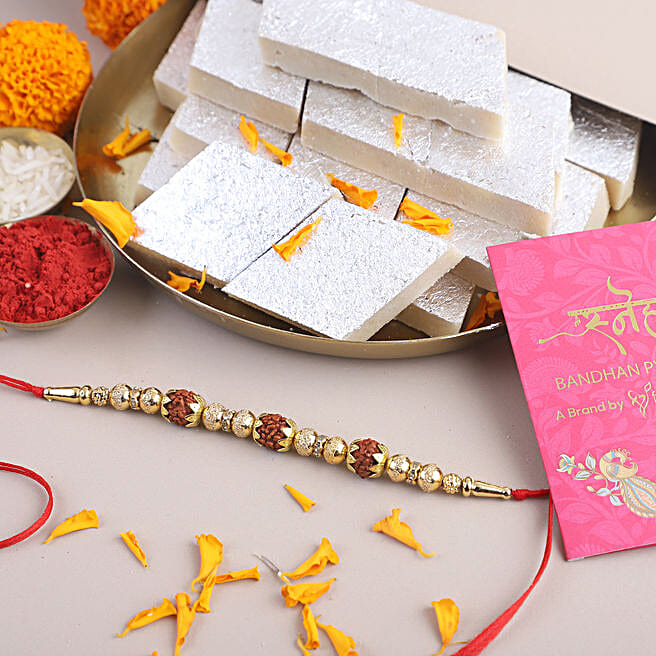 स्नेह
BANDHAN P
A Brand by